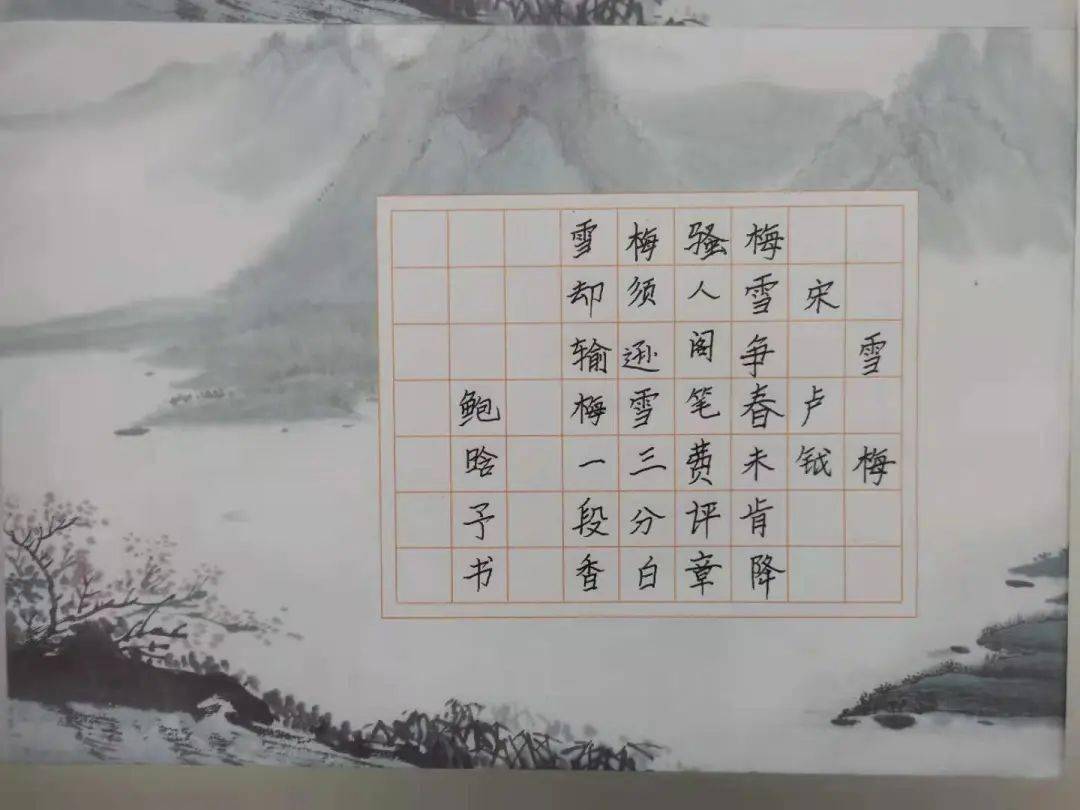 雪梅
宋卢钺
梅雪争春未肯降
骚人阁笔费评章
梅须逊雪三分白
雪却输梅一段香
鲍晗予书